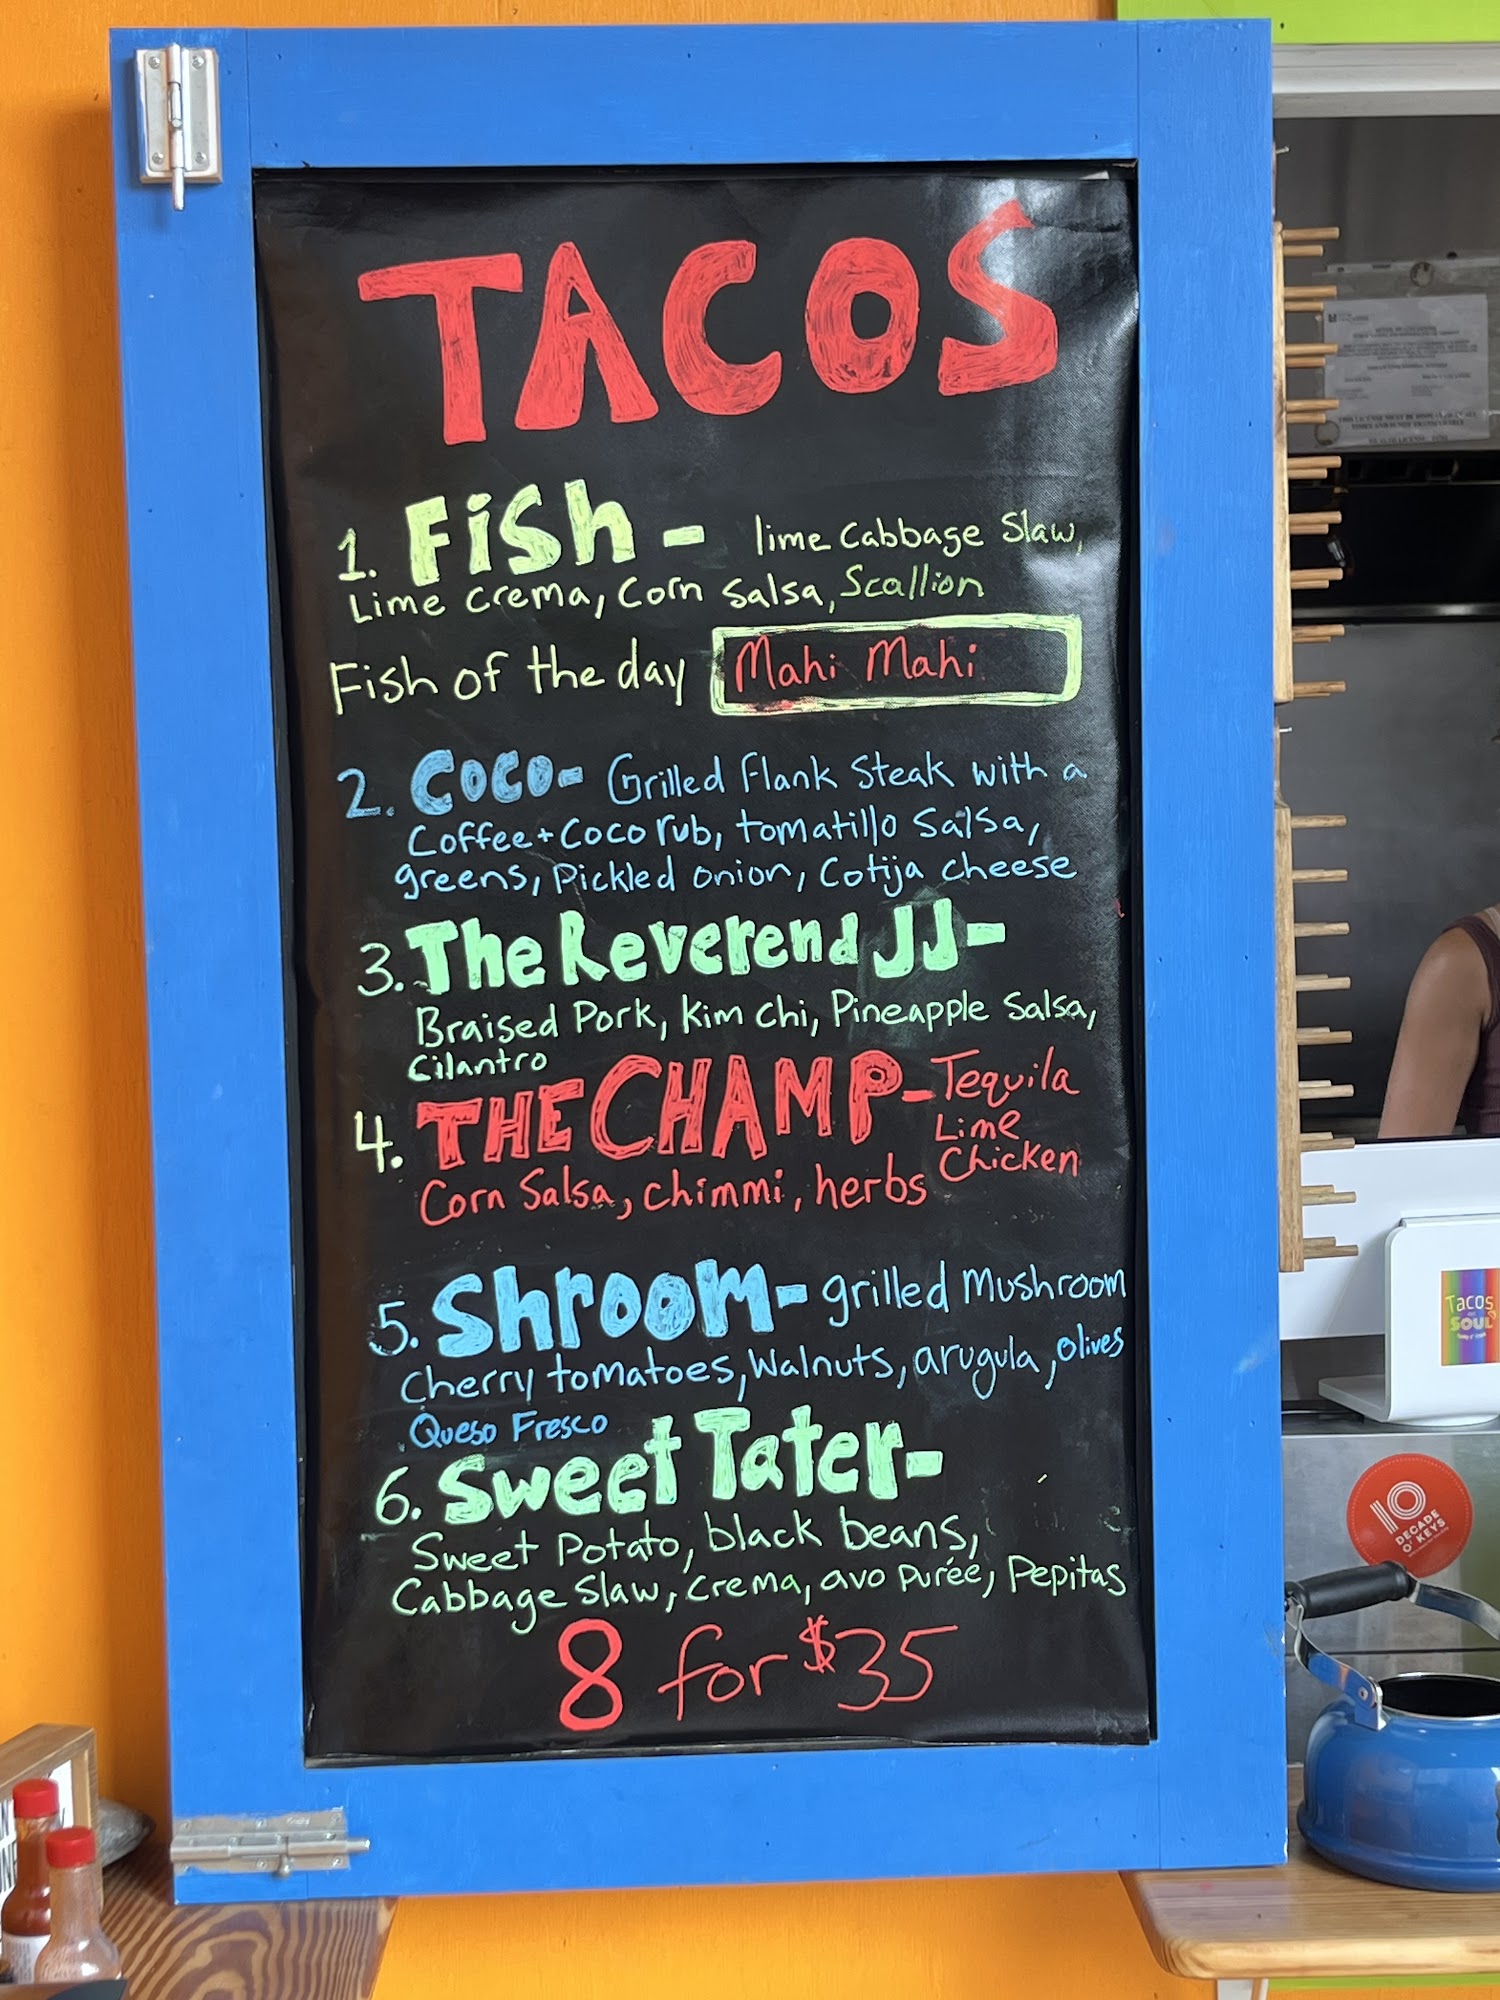 TACOS
1. Fish - lime Cabbage Slaw,
Lime crema, Corn Salsa, Scallion
Fish of the day Mahi Mahi
2. COCO- Grilled flank steak with a
Coffee + Coco rub, tomatillo salsa,
greens, Pickled onion, Cotija cheese
3. The Reverend JJ-
Braised Pork, Kim chi, Pineapple Salsa,
Cilantro
4. THE CHAMP- Tequila
Lime
Chicken
Corn Salsa, chimmi, herbs
5. Shroom- grilled Mushroom
Cherry tomatoes, Walnuts, arugula, olives
Queso Fresco
6. Sweet Tater-
Sweet Potato, black beans,
Cabbage Slaw, crema, avo purée, Pepitas
8 for $35
Tacos
SOUL
10
DECADE
O' KEYS